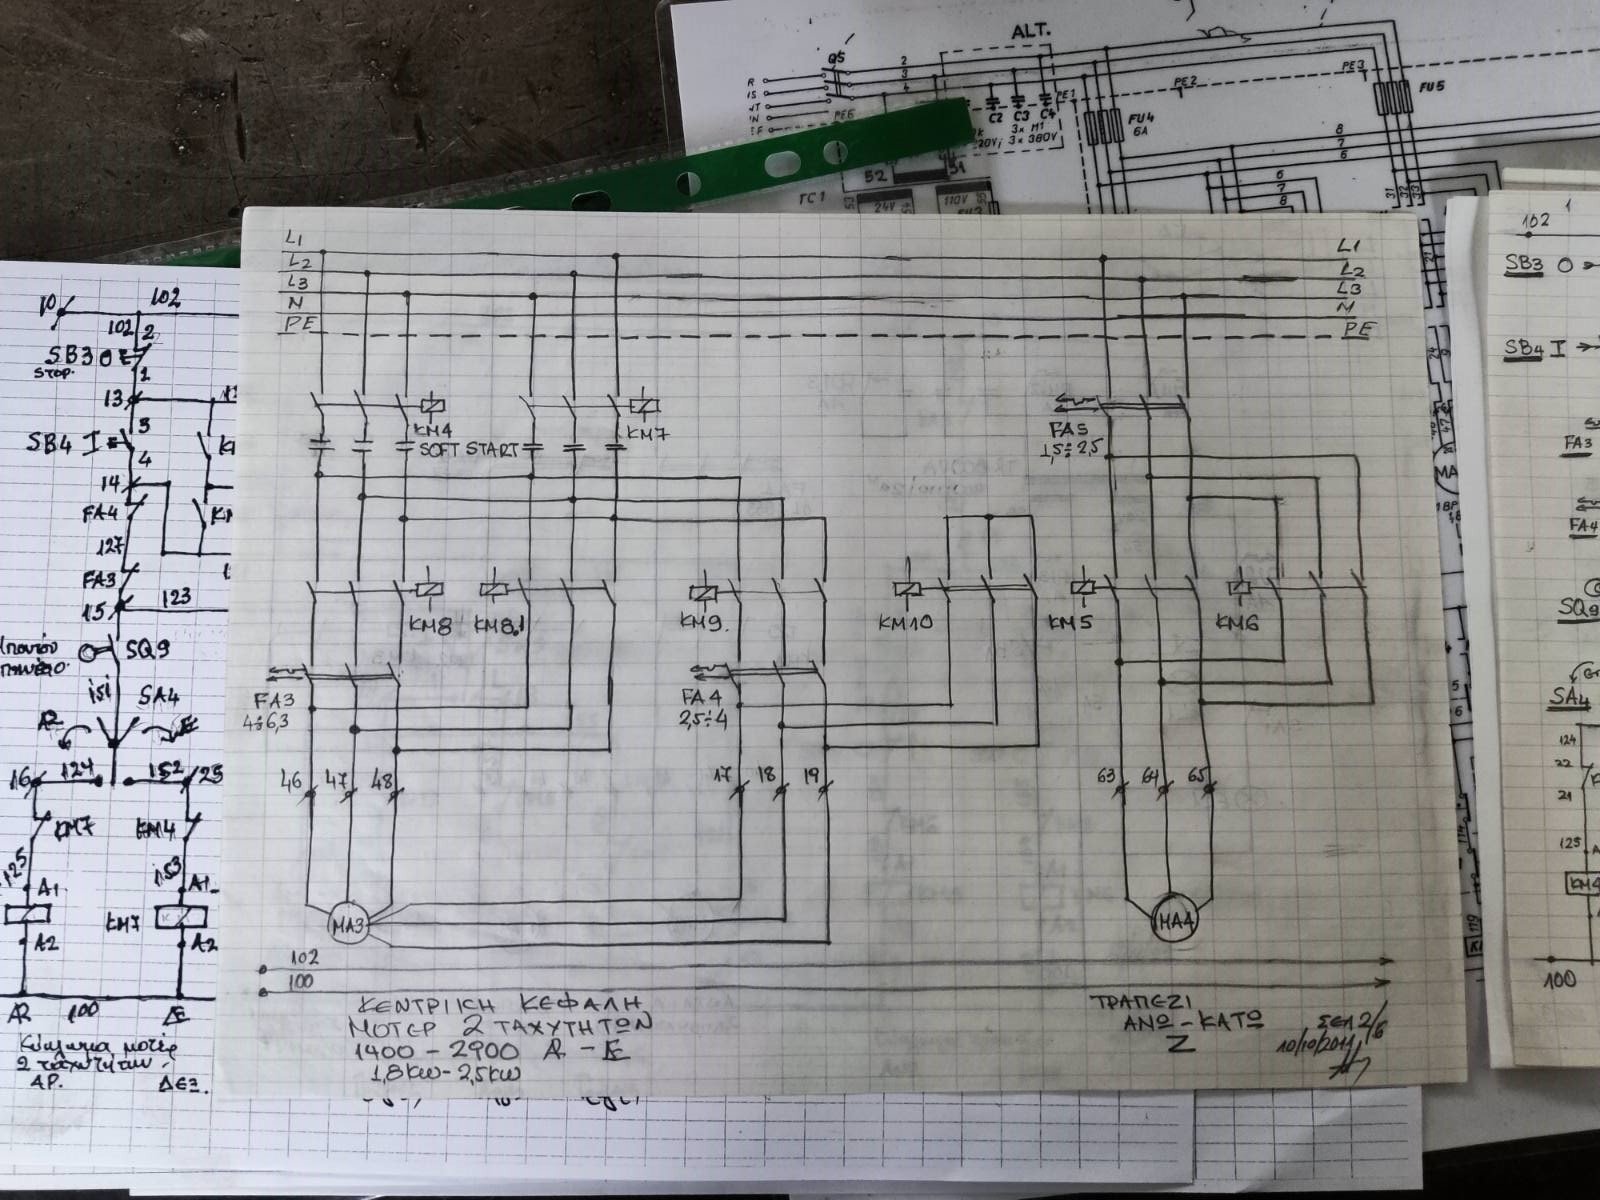 ALT.
Q5
2
3
4
PE1
PE2
PE3
FU5
R
NT
PE6
C2 C3 C4
3x M1
220V; 3x 380V
FU4
6A
8
7
6
6
7
8
31
32
33
TC1
52
51
24V
110V
L1
L2
L3
N
PE
L1
L2
L3
N
PE
KM4
SOFT START
KM7
FA5
1,5÷2,5
KM8
KM8.1
KM9.
KM10
KM5
KM6
FA3
4÷6,3
FA4
2,5÷4
46
47
48
17
18
19
63
64
65
MA3
MA4
102
100
ΚΕΝΤΡΙΚΗ ΚΕΦΑΛΗ
ΜΟΤΕΡ 2 ΤΑΧΥΤΗΤΩΝ
1400 - 2900 AR - ΔΕ
1,8KW - 2,5KW
ΤΡΑΠΕΖΙ
ΑΝΩ - ΚΑΤΩ
Z
ΣΕΛ 2/6
10/10/2011
10
102
102
2
SB3
STOP.
1
13
3
SB4 I
4
14
FA4
127
FA3
15
123
SQ9
151
SA4
16
124
152
25
KM7
KM4
125
153
A1
A1
KM7
A2
A2
AR
100
ΔΕ
2 ταχυτήτων
ΑΡ.
ΔΕΞ.
102
1
SB3
SB4 I
FA3
FA4
SQ9
SA4
124
22
21
125
KM4
100